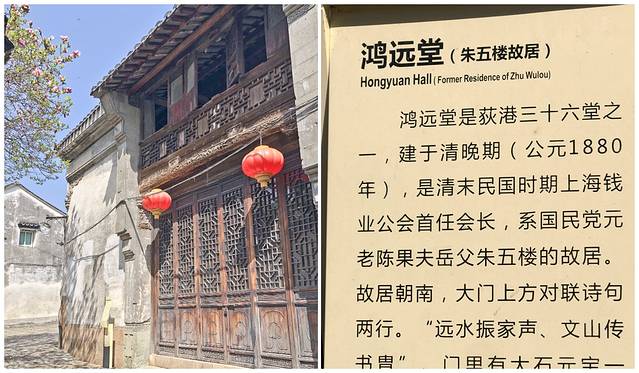 鸿远堂（朱五楼故居）
Hongyuan Hall ( Former Residence of Zhu Wulou)
鸿远堂是荻港三十六堂之
一，建于清晚期（公元1880
年），是清末民国时期上海钱
业公会首任会长，系国民党元
老陈果夫岳父朱五楼的故居。
故居朝南，大门上方对联诗句
两行。“远水振家声、文山传
书胄”，门里有大石元宝一